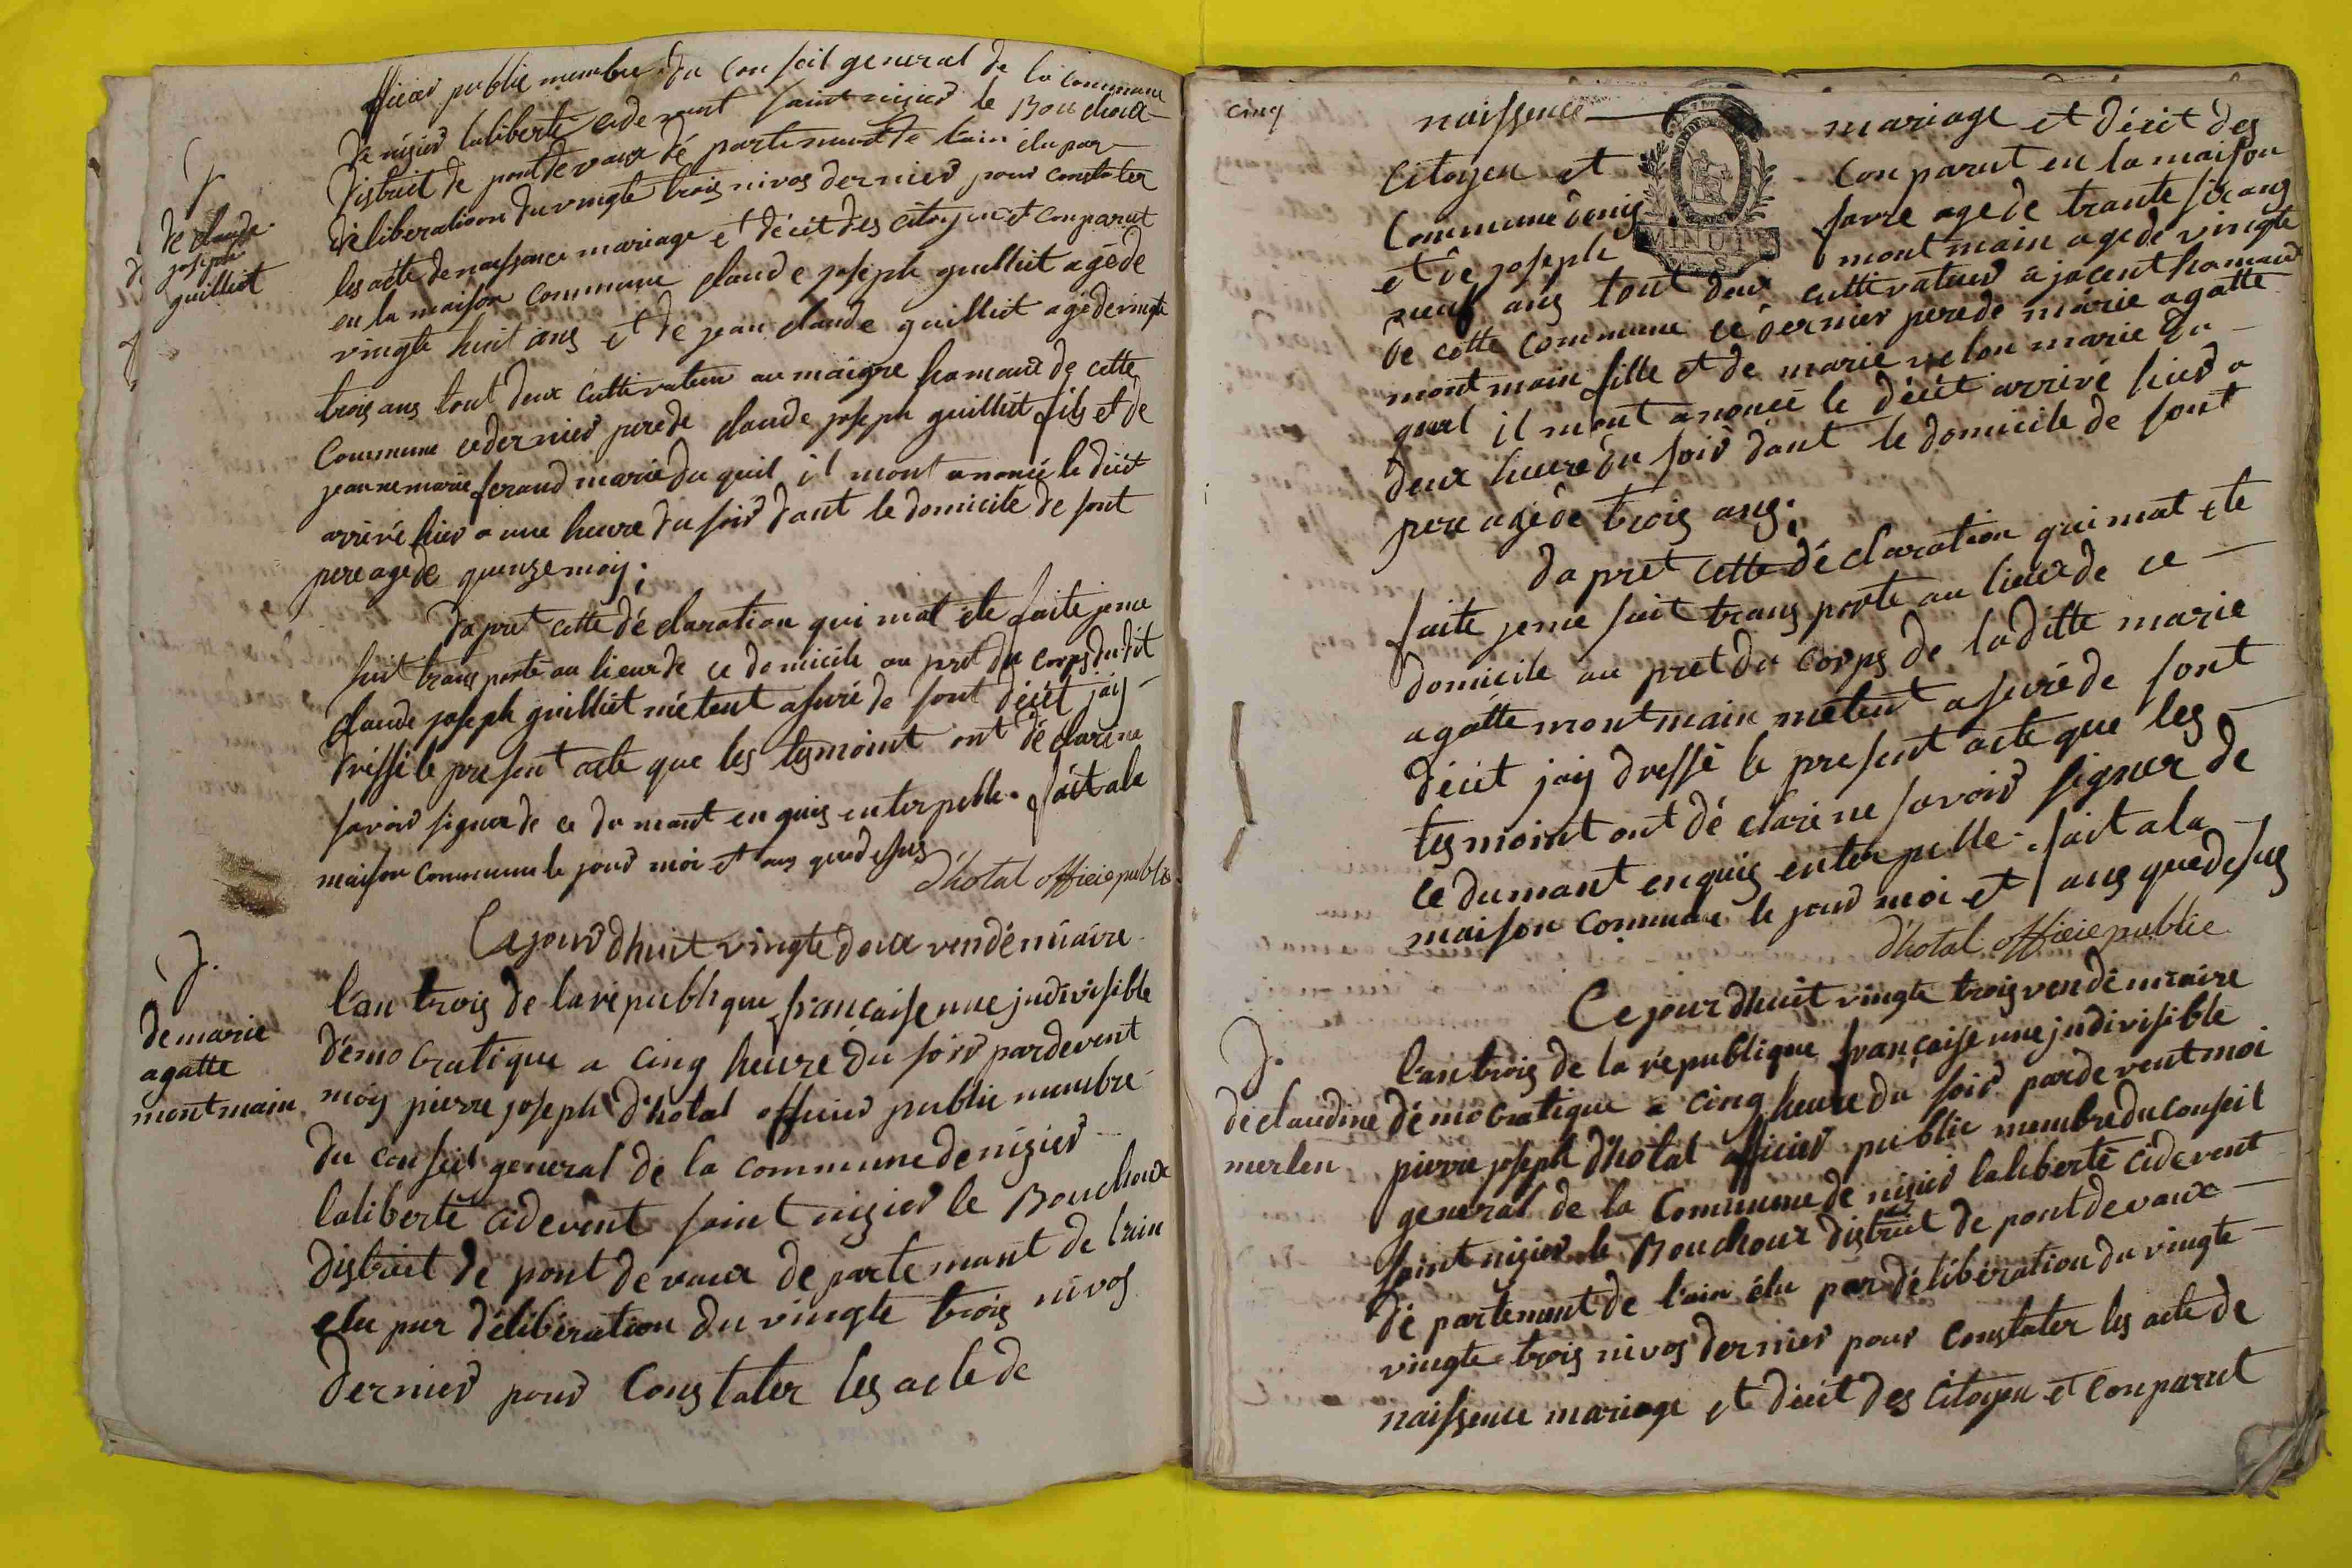 officier public membre du conseil general de la commune
de nizier laliberté cidevent saint nizier le Bouchoux
district de pontdevaux département de lain élu par
déliberation du vingte trois nivos dernier pour constater
les acte de naissance mariage et décét des citoyen et conparut
en la maison commune claude joseph guilliut agé de
vingte huit ans et de jean claude guilliut agé de vingte
trois ans tout deux cultivateur au maigre hamaud de cette
commune ce dernier pere de claude joseph guilliut fils et de
jeanne marie feraud marie du quel il mont anoncé le décét
arrivé hier a une heure du soir dant le domicile de sont
pere agé de quenze mois;
d'apret cette déclaration qui mat ete faite jeme
suit transporté au lieux de ce domicile au pret du corps dudit
claude joseph guilliut métent asuré de sont décét jais
dressé le present acte que les tesmoint ont déclaré ne
savoir signer de ce du mant enquis enterpelle. fait a la
maison commune le jour moi et ans que desus
d'hotal officie public
de claude
joseph
guilliut
D.
de marie
agatte
montmain
Ce jourdhuit vingte deux vendémiaire
l'an trois de la république française une jndivisible
démocratique a cinq heure du soir pardevent
moy pierre joseph d'hotal officier public membre
du conseil general de la commune de nizier
laliberté cidevent saint nizier le Bouchoux
district de pont de vaux departemant de lain
elu par déliberation du vingte trois nivos
dernier pour constater les acte de
cinq
naissence mariage et décét des
citoyen et conparut en la maison
commune denis favre agé de trante six ans
et de joseph montmain agé de vingte
MINUTE
neuf ans tout deux cultivateur a jacent hamaud
de cette commune ce dernier pere de marie agatte
montmain fille et de marie velon marie du
quel il mont anoncé le décét arrivé hier a
deux heure du soir dant le domicile de sont
pere agé de trois ans;
dapret cette déclaration qui mat ete
faite jeme suit transporte au lieux de ce
domicile au pret du corps de laditte marie
agatte montmain métent asuré de sont
décét jais dressé le present acte que les
tesmoint ont déclaré ne savoir signer de
ce dumant enquis enterpelle. fait a la
maison commune le jour moi et ans que desus
d'hotal officie public
D.
de claudine
merlen
Ce jour dhuit vingte trois vendémiaire
l'an trois de la république française une jndivisible
démocratique a cinq heure du soir pardevent moi
pierre joseph d'hotal officier public membre du conseil
general de la commune de nizier laliberté cidevent
saint nizier le Bouchoux district de pontdevaux
département de l'ain élu par déliberation du vingte
vingte trois nivos dernier pour constater les acte de
naissence mariage et décét des citoyen et conparut